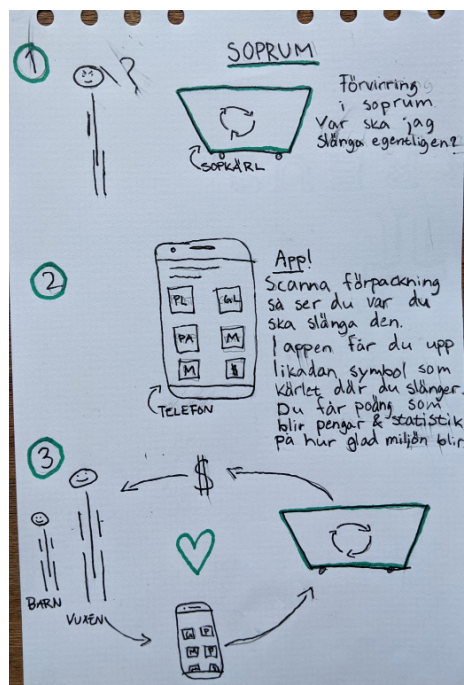 1
SOPRUM
?
Förvirring
i soprum
Var ska jag
slänga egentligen?
SOPKÄRL
2
PL GL
PA M
M $
TELEFON
App!
Scanna förpackning
så ser du var du
ska slänga den.
I appen får du upp
likadan symbol som
kärlet där du slänger.
Du får poäng som
blir pengar & statistik
på hur glad miljön blir
3
$
BARN
VUXEN